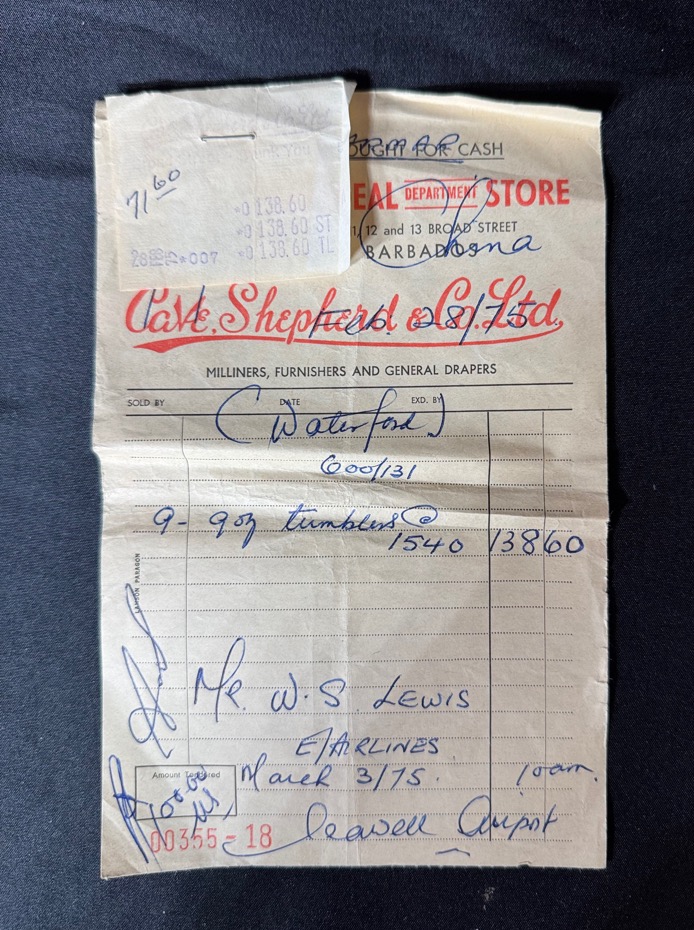 71 60
*0 138.60
*0 138.60 ST
*0 138.60 TL
OUGHT FOR CASH
EAL DEPARTMENT STORE
1, 12 and 13 BROAD STREET
BARBADOS
China
Cave, Shepherd & Co. Ltd.
Feb. 28/75
MILLINERS, FURNISHERS AND GENERAL DRAPERS
SOLD BY DATE EXD. BY
(Waterford)
600/131
9 - 9oz tumblers @
1540 13860
LAMSON PARAGON
Mr. W. S. LEWIS
E/AIRLINES
March 3/75. 10am.
Amount Tendered
100.00
US
Seawell Airport
00355-18